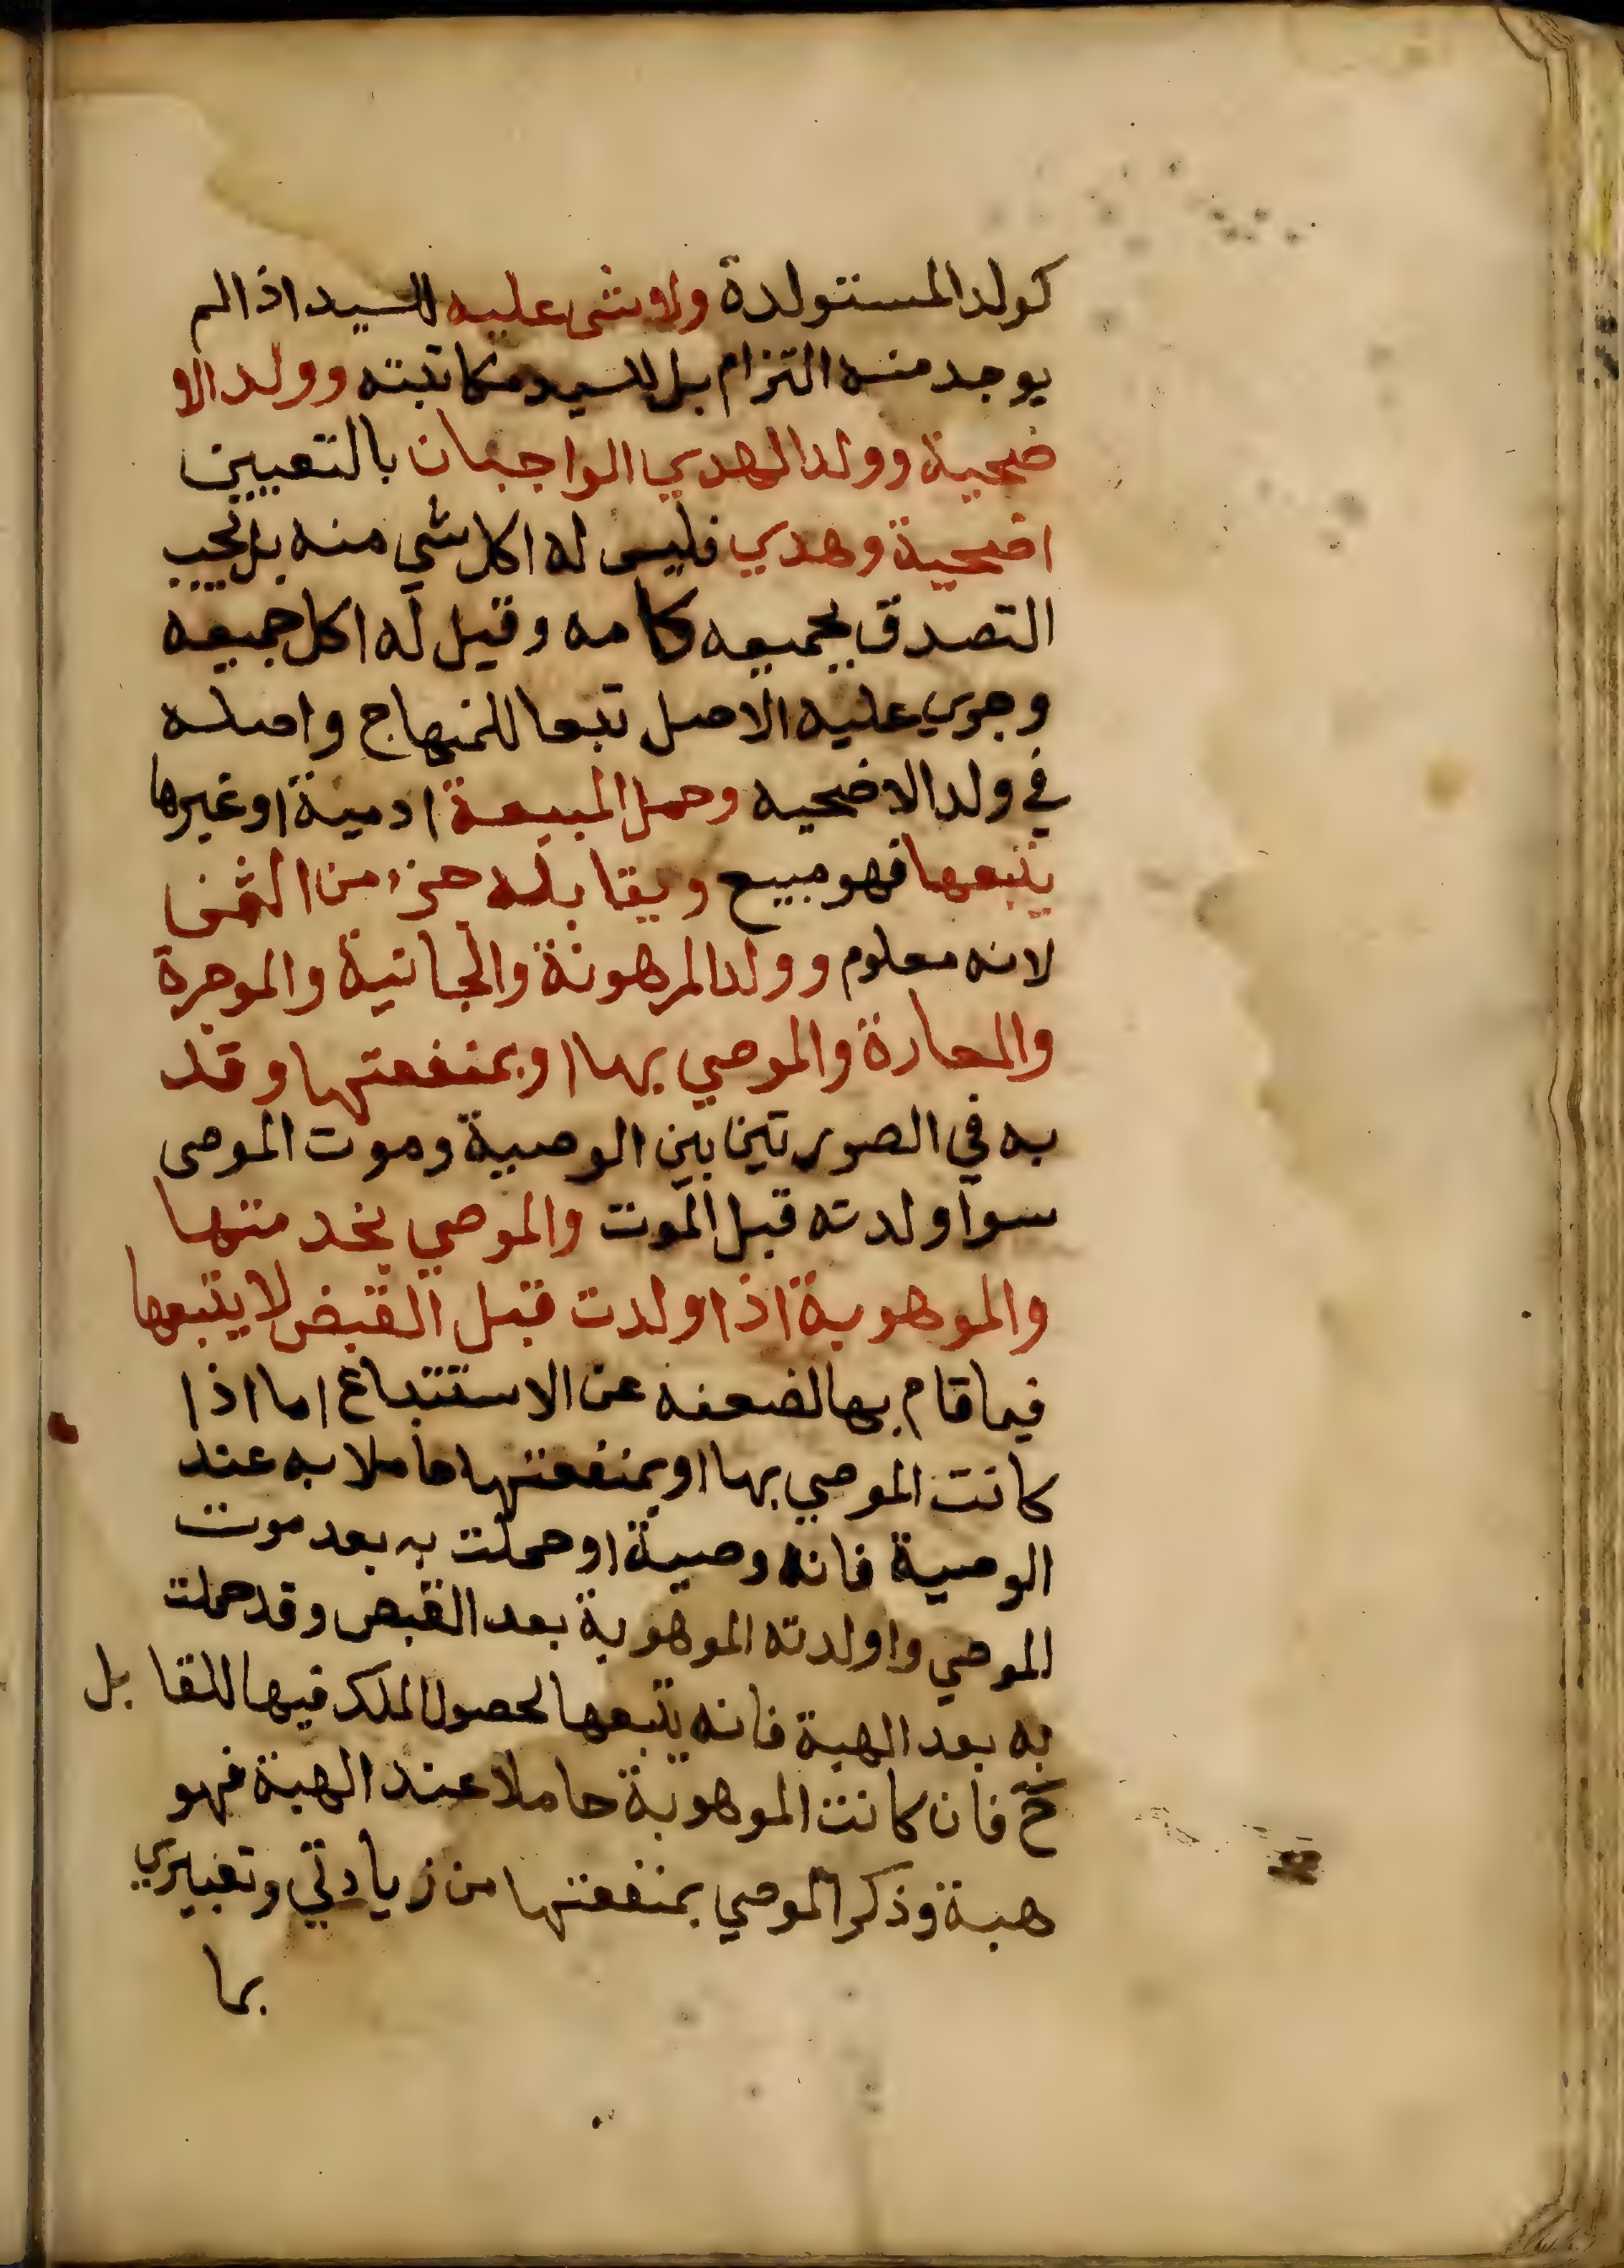 كولد المستولدة ولا شي عليه للسيد اذا لم
يوجد منه التزام بل للسيد مكاتبته وولد الا
ضحية وولد الهدي الواجبان بالتعيين
اضحية وهدي فليس له اكل شي منه بل يجب
التصدق بجميعه كامه وقيل له اكل جميعه
وجري عليه الاصل تبعا للمنهاج واصله
في ولد الاضحيه وحمل المبيعة ادمية او غيرها
يتبعها فهو مبيع ويقابله جزء من الثمن
لانه معلوم وولد المرهونة والجانية والموجرة
والمعارة والموصي بها او بمنفعتها وقد
به في الصورتين بين الوصية وموت الموصى
سوا ولدته قبل الموت والموصي بخدمتها
والموهوبة اذا ولدت قبل القبض لا يتبعها
فيما قام بها لضعفه عن الاستتباع اما اذا
كانت الموصي بها او بمنفعتها حاملا به عند
الوصية فانه وصية او حملت به بعد موت
الموصي واولدته الموهوبة بعد القبض وقد حملت
به بعد الهبة فانه يتبعها لحصول الملك فيها للمقابل
ح فان كانت الموهوبة حاملا عند الهبة فهو
هبة وذكر الموصي بمنفعتها من زيادتي وتعبيري
بما